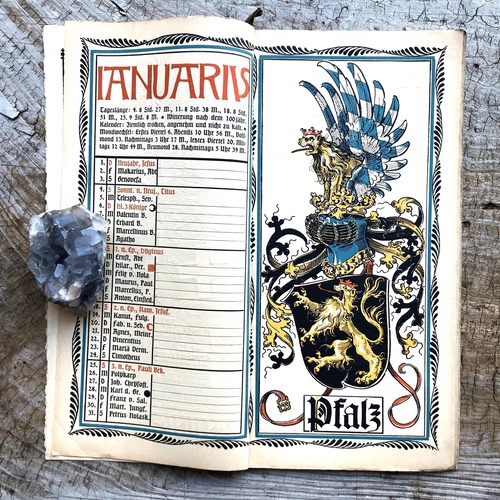 IANUARIUS
Tageslänge: 4. 8 Std. 27 M., 11. 8 Std. 38 M., 18. 8 Std.
51 M., 25. 9 Std. 8 M. * Witterung nach dem 100jähr.
Kalender: Ziemlich trocken, angenehm und nicht zu kalt. *
Mondwechsel: Erstes Viertel 6. Abends 10 Uhr 56 M., Voll-
mond 13. Nachmittags 3 Uhr 17 M., letztes Viertel 20. Mit-
tags 12 Uhr 49 M., Neumond 28. Nachmittags 5 Uhr 39 M.
1. D Neujahr, Jesus
2. F Makarius, Abt
3. S Genovefa
4. S Sonnt. n. Neuj., Titus
5. M Telesph., Sev.
6. D hl. 3 König.
7. M Valentin B.
8. Erhard B.
9. Marcellinus B.
Agatho
1. n. Ep., Hyginus
Ernst, Abt
Hilar., Ver.
Felix v. Nola
Maurus, Paul
Marcellus, P.
Anton, Einsied.
18. S 2. n. Ep., Nam. Jesuf.
19. M Kanut, Fulg.
20. D Fab. u. Seb.
21. M Agnes, Meinr.
22. D Vincentius
23. F Mariä Verm.
24. S Timotheus
25. S 3. n. Ep., Pauli Bek.
26. M Polykarp
27. D Joh. Chrysost.
28. M Karl d. Gr.
29. D Franz v. Sal.
30. F Mart. Jungf.
31. S Petrus Nolask.
Pfalz